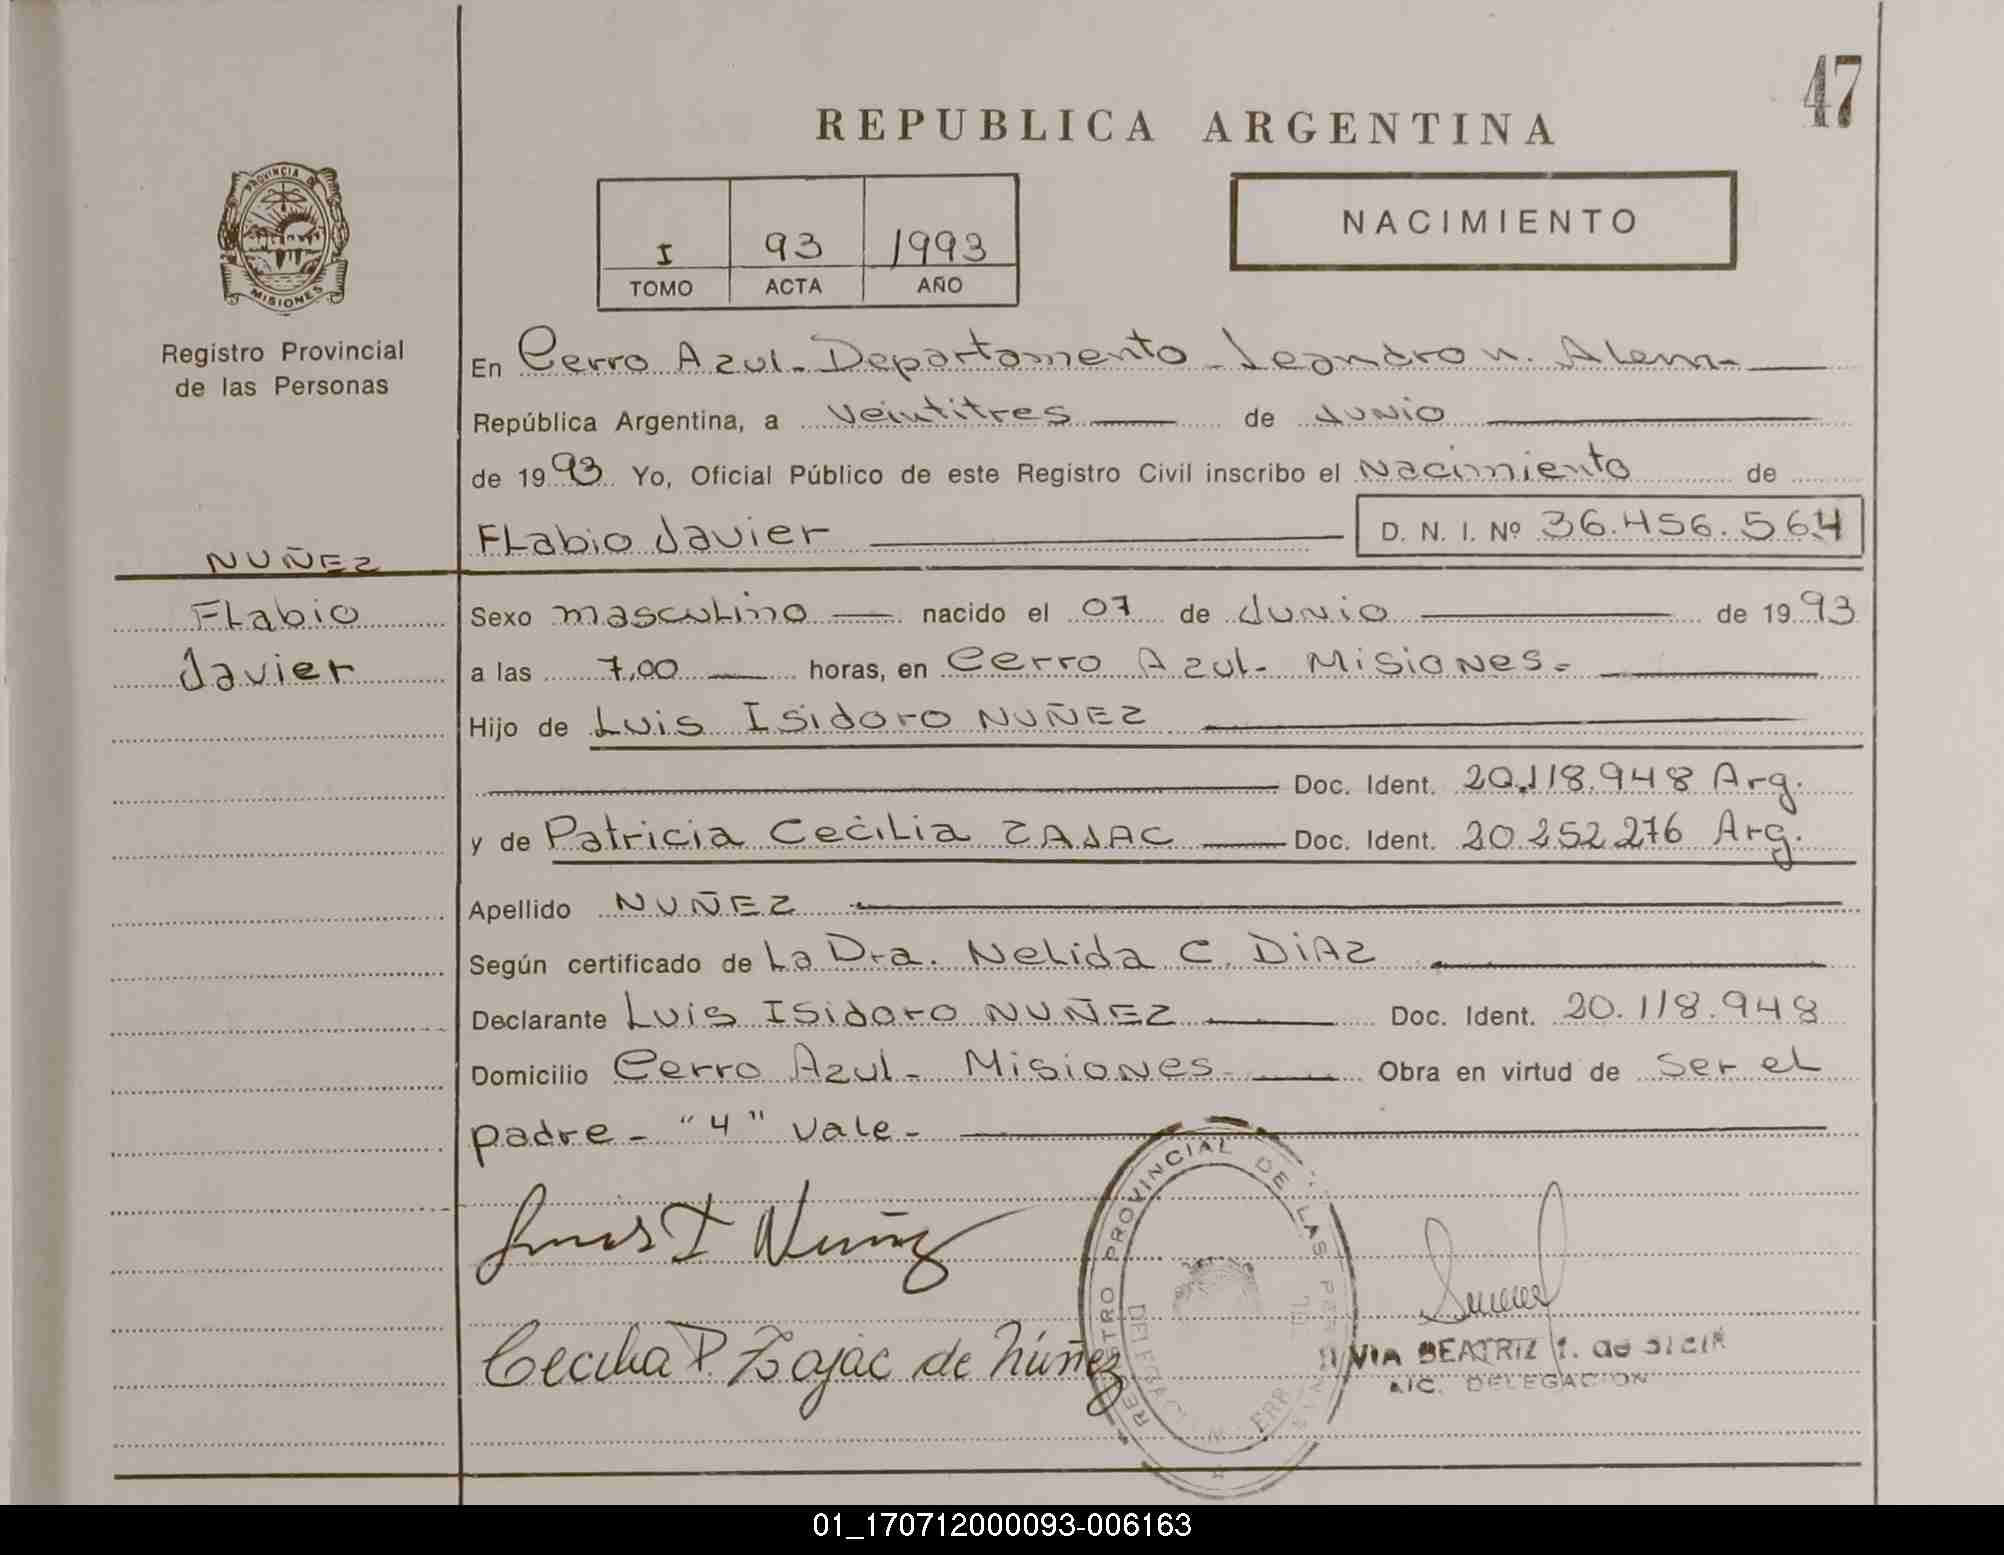 47
REPUBLICA ARGENTINA
PROVINCIA DE
MISIONES
Registro Provincial
de las Personas
I 93 1993
TOMO ACTA AÑO
NACIMIENTO
En Cerro Azul - Departamento - Leandro N. Alem -
República Argentina, a Veintitres de Junio
de 1993 Yo, Oficial Público de este Registro Civil inscribo el Nacimiento de
FLabio Javier D. N. I. Nº 36.456.564
NUÑEZ
FLabio
Javier
Sexo masculino nacido el 07 de Junio de 1993
a las 7,00 horas, en Cerro Azul - Misiones -
Hijo de Luis Isidoro NUÑEZ
Doc. Ident. 20.118.948 Arg.
y de Patricia Cecilia ZAJAC Doc. Ident. 20.252.276 Arg.
Apellido NUÑEZ
Según certificado de La Dra. Nelida C. DiAZ
Declarante Luis Isidoro NUÑEZ Doc. Ident. 20.118.948
Domicilio Cerro Azul - Misiones - Obra en virtud de ser el
padre - "4" Vale -
Luis I Nuñez
Cecilia P. Zajac de Núñez
REGISTRO PROVINCIAL DE LAS
BEATRIZ
DELEGACION
01_170712000093-006163